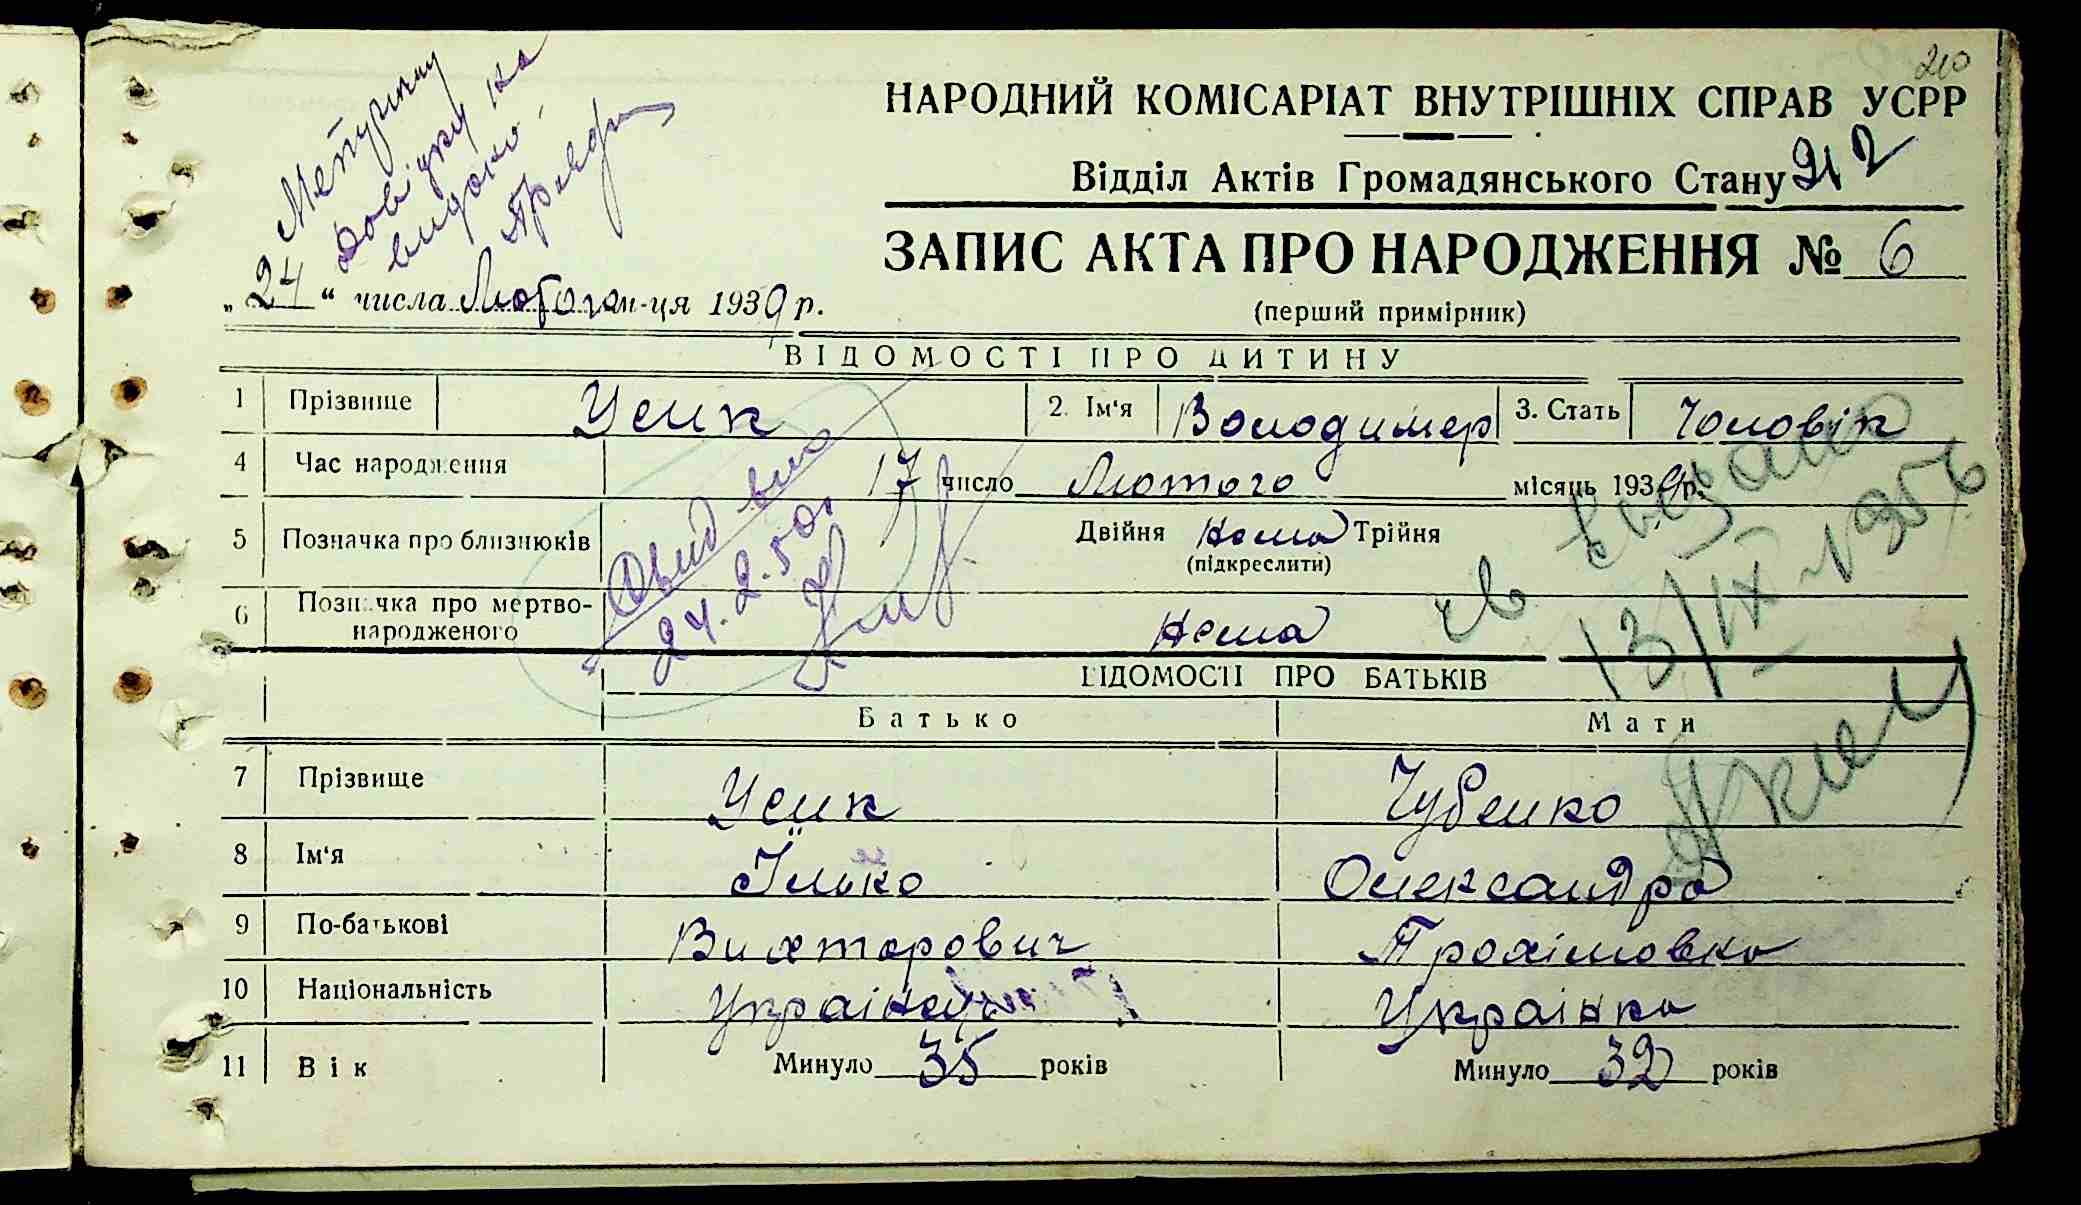 210
НАРОДНИЙ КОМІСАРІАТ ВНУТРІШНІХ СПРАВ УСРР
Відділ Актів Громадянського Стану 212
ЗАПИС АКТА ПРО НАРОДЖЕННЯ № 6
(перший примірник)
Метричну
довідку на
видано
„24“ числа Лютого м-ця 1939 р.
ВІДОМОСТІ ПРО ДИТИНУ
1 Прізвище Усик 2. Ім'я Володимер 3. Стать Чоловік
4 Час народження 17 число Лютого місяць 1939 р.
5 Позначка про близнюків Двійня Нема Трійня
(підкреслити)
6 Позначка про мертво-
народженого Нема
24.2.50
св видано
13/IX 1956
ВІДОМОСТІ ПРО БАТЬКІВ
Батько Мати
7 Прізвище Усик Чубенко
8 Ім'я Ілько Олександра
9 По-батькові Вихторович Трохімовна
10 Національність Украінец Украінка
11 Вік Минуло 35 років Минуло 32 років